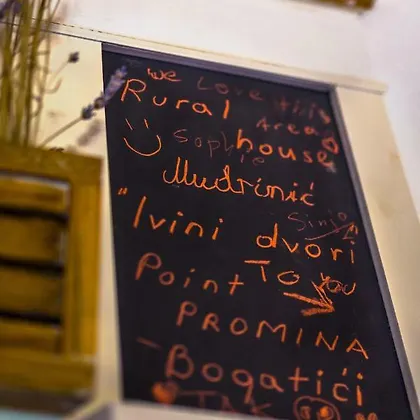 we Love this
Rural Area
:) Sophie house
Mudrinić
"Ivini dvori
Simic
Point To you
PROMINA
- Bogatići